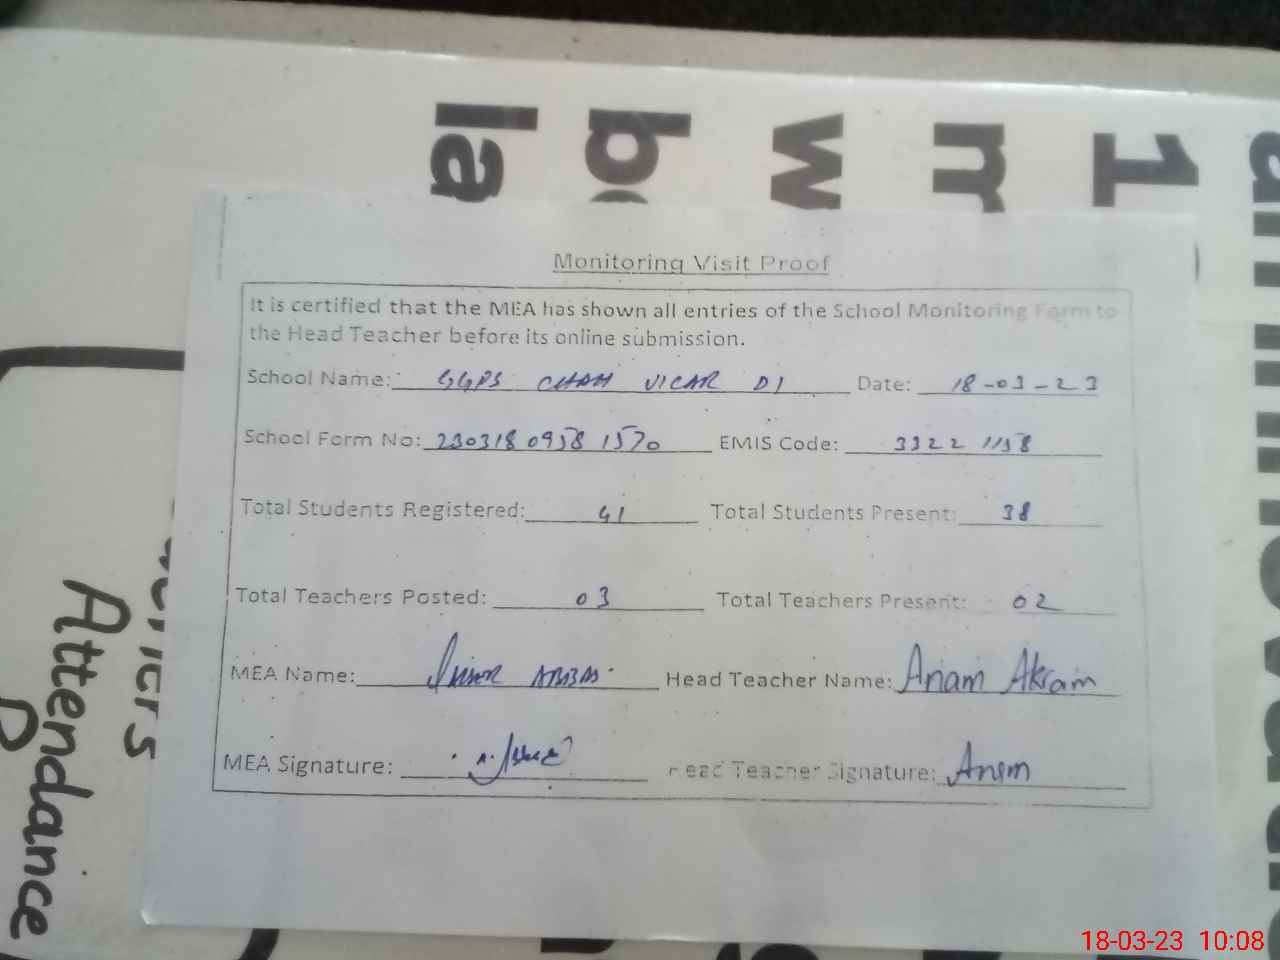 la
w
m
1
Monitoring Visit Proof
It is certified that the MEA has shown all entries of the School Monitoring Form to
the Head Teacher before its online submission.
School Name: GGPS CHAH VICAR DI Date: 18-03-23
School Form No: 230318 0958 1570 EMIS Code: 3322 1158
Total Students Registered: 41 Total Students Present: 38
Total Teachers Posted: 03 Total Teachers Present: 02
MEA Name: Head Teacher Name: Anam Akram
MEA Signature: Head Teacher Signature: Anam
Attendance
18-03-23 10:08